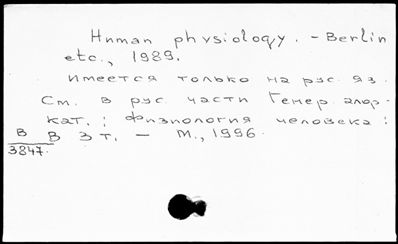 Human physiology. - Berlin
etc., 1989.
имеется только на рус. яз.
См. в рус. части Генер. алф.
кат.: Физиология человека:
В 3 т. — М., 1996.
В
3847.